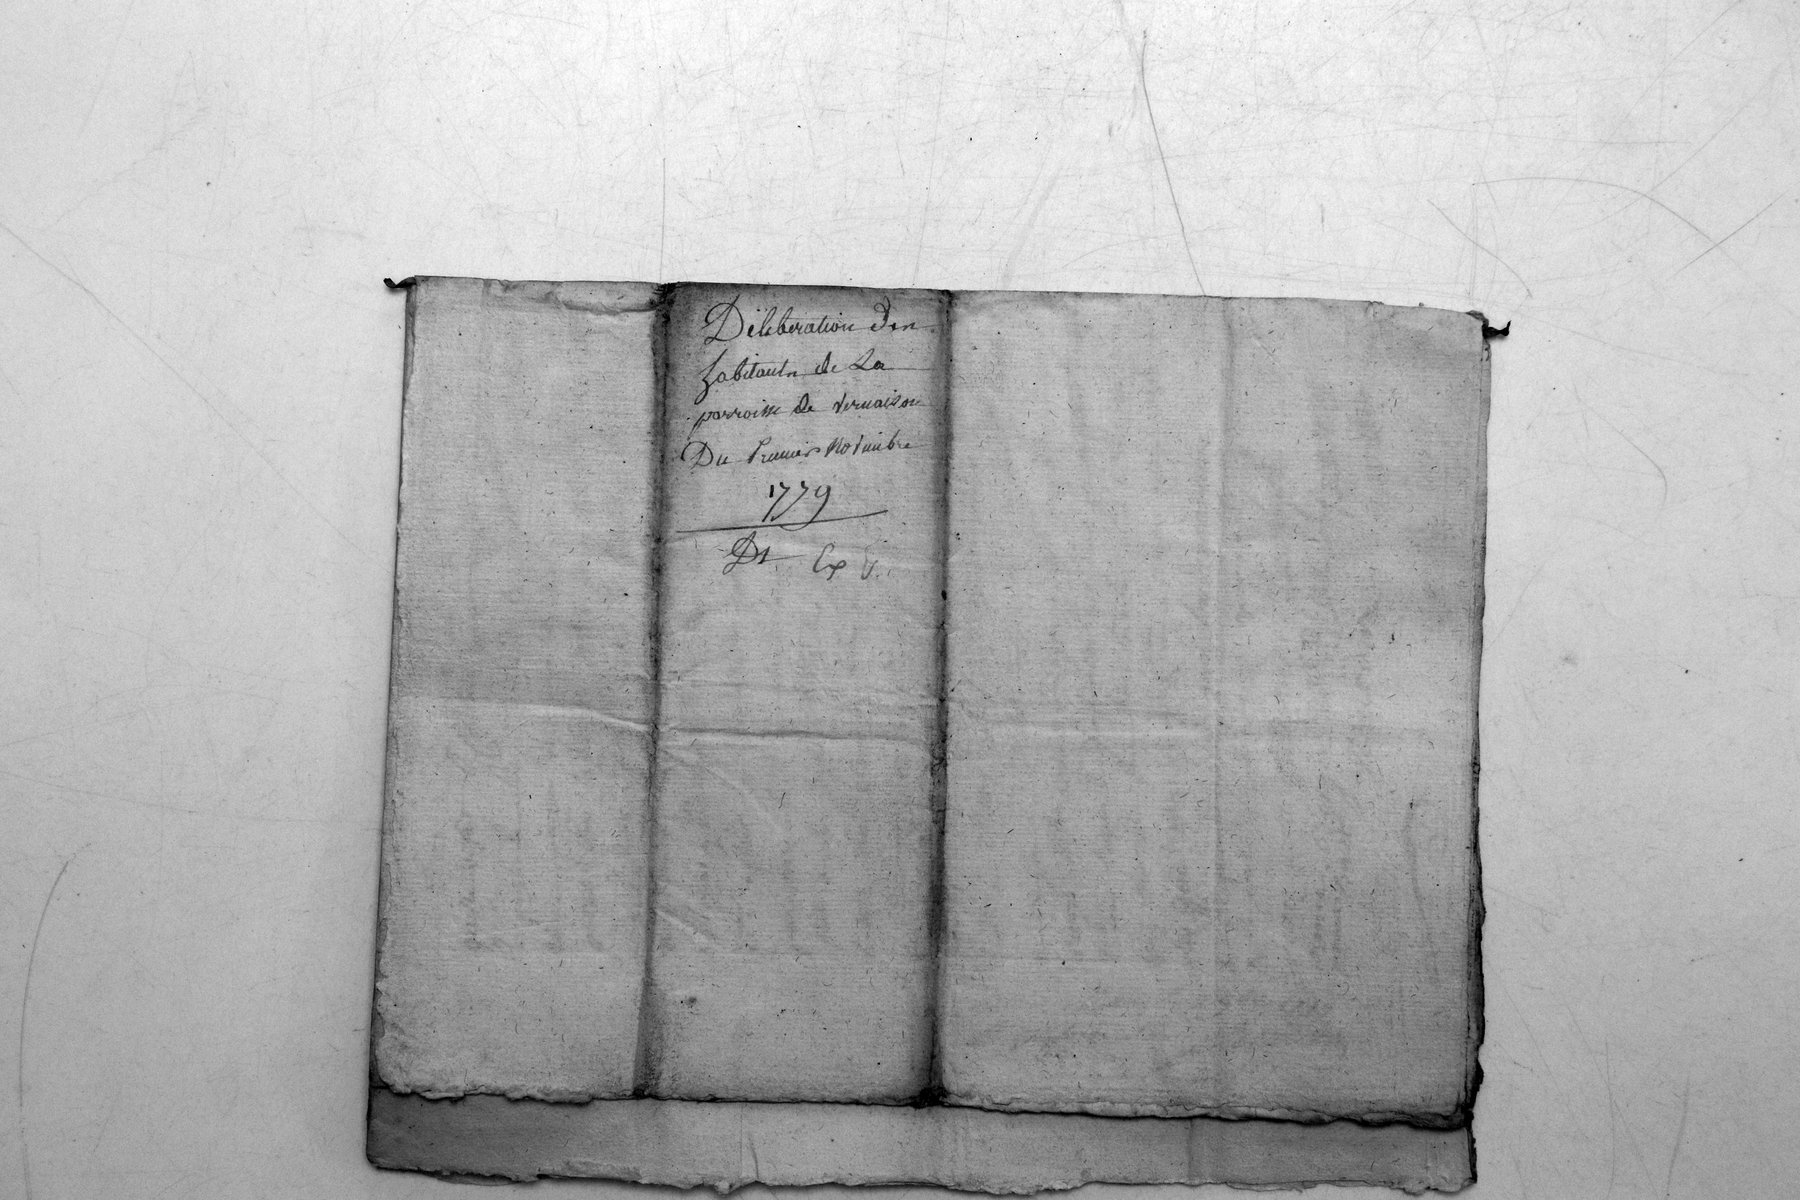 Déliberation des
habitants de La
parroisse de vernaison
Du Premier Novembre
1779
Dt. Ex